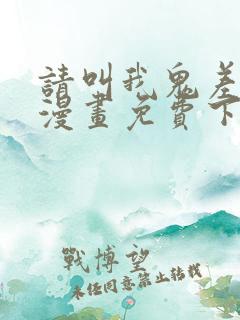 請叫我鬼差
漫畫免費下
戰博望
未任同意禁止轉載